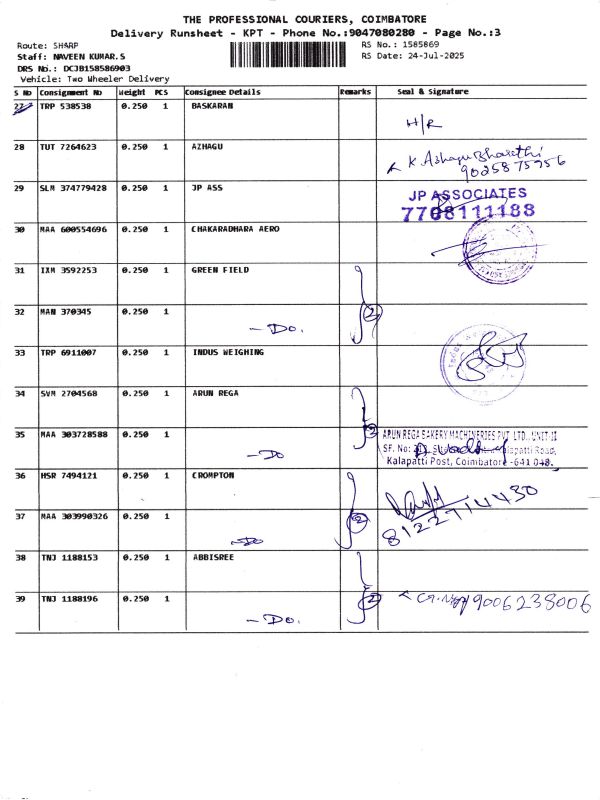 THE PROFESSIONAL COURIERS, COIMBATORE
Delivery Runsheet - KPT - Phone No.:9047080280 - Page No.:3
Route: SHARP
RS No.: 1585869
Staff: NAVEEN KUMAR.S
RS Date: 24-Jul-2025
DRS No.: DCJB158586903
Vehicle: Two Wheeler Delivery
S No Consignment No Weight PCS Consignee Details Remarks Seal & Signature
27 TRP 538538 0.250 1 BASKARAN
H/R
28 TUT 7264623 0.250 1 AZHAGU
K Azhagu Bharathi
9025875756
29 SLM 374779428 0.250 1 JP ASS
JP ASSOCIATES
7708111188
30 MAA 600554696 0.250 1 CHAKARADHARA AERO
31 IXM 3592253 0.250 1 GREEN FIELD
32 MAN 370345 0.250 1
- Do. 2
33 TRP 6911007 0.250 1 INDUS WEIGHING
34 SVM 2704568 0.250 1 ARUN REGA
35 MAA 303728588 0.250 1
- Do 2
ARUN REGA BAKERY MACHINERIES PVT. LTD., UNIT-II
SF. No: Kalapatti Road,
Kalapatti Post, Coimbatore - 641 048.
36 HSR 7494121 0.250 1 CROMPTON
37 MAA 303990326 0.250 1
- Do 2
8122714430
38 TNJ 1188153 0.250 1 ABBISREE
39 TNJ 1188196 0.250 1
- Do. 2
9006238006